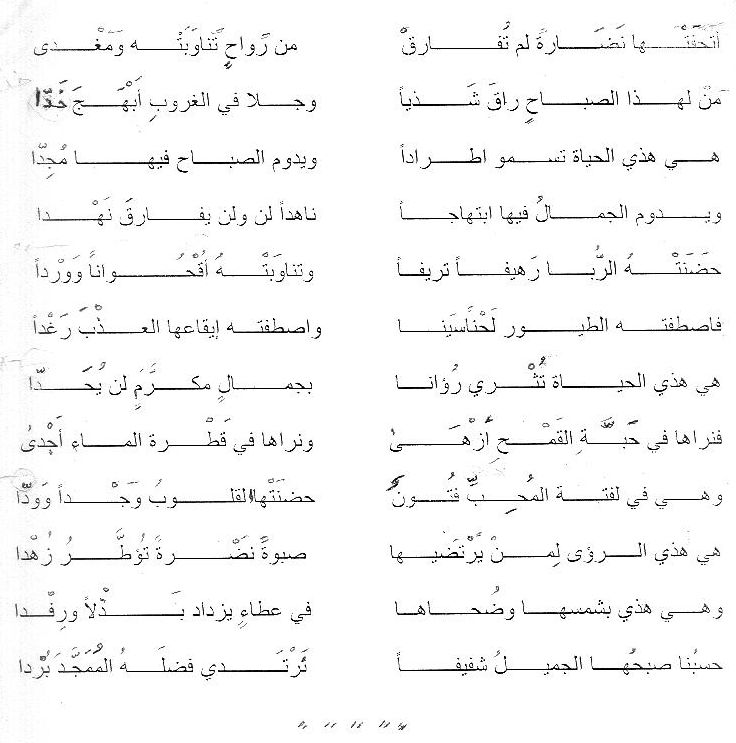 أتحفتْها نَضَارةً لم تُفارقْ من رَواحٍ تَناوَبَتْه وَمَغْدى
مَنْ لهذا الصباحِ راقَ شَذياً وجلا في الغروبِ أَبْهَجَ خَدّا
هي هذي الحياة تسمو اطراداً ويدوم الصباح فيها مُجِدّا
ويدوم الجمالُ فيها ابتهاجاً ناهداً لن ولن يفارقَ نَهْدا
حضَنَتْهُ الرُّبا رَهيفاً تريفاً وتناوَبَتْهُ أُقْحُواناً وَوَرْداً
فاصطفته الطيور لَحْناً سَينا واصطفته إيقاعها العذْبَ رَغْداً
هي هذي الحياة تُثْري رُؤانا بجمالٍ مكرَّمٍ لن يُحَدّا
فنراها في حَبَّةِ القَمْحِ أَزْهَى ونراها في قَطْرة الماءِ أَجْدىُ
وهي في لفتة المُحِبِّ فتُونٌ حضنَتْها القلوبُ وَجْداً وَودّاً
هي هذي الرؤى لِمنْ يَرْتَضيها صبوةً نَضْرةً تُؤطَّرُ زُهْدا
وهي هذي بشمسها وضُحاها في عطاءٍ يزداد بَذْلاً ورِفْدا
حسبُنا صبحُها الجميلُ شفيفاً نَرْتَدي فضلَهُ المُمَجَّدَ بُرْدا